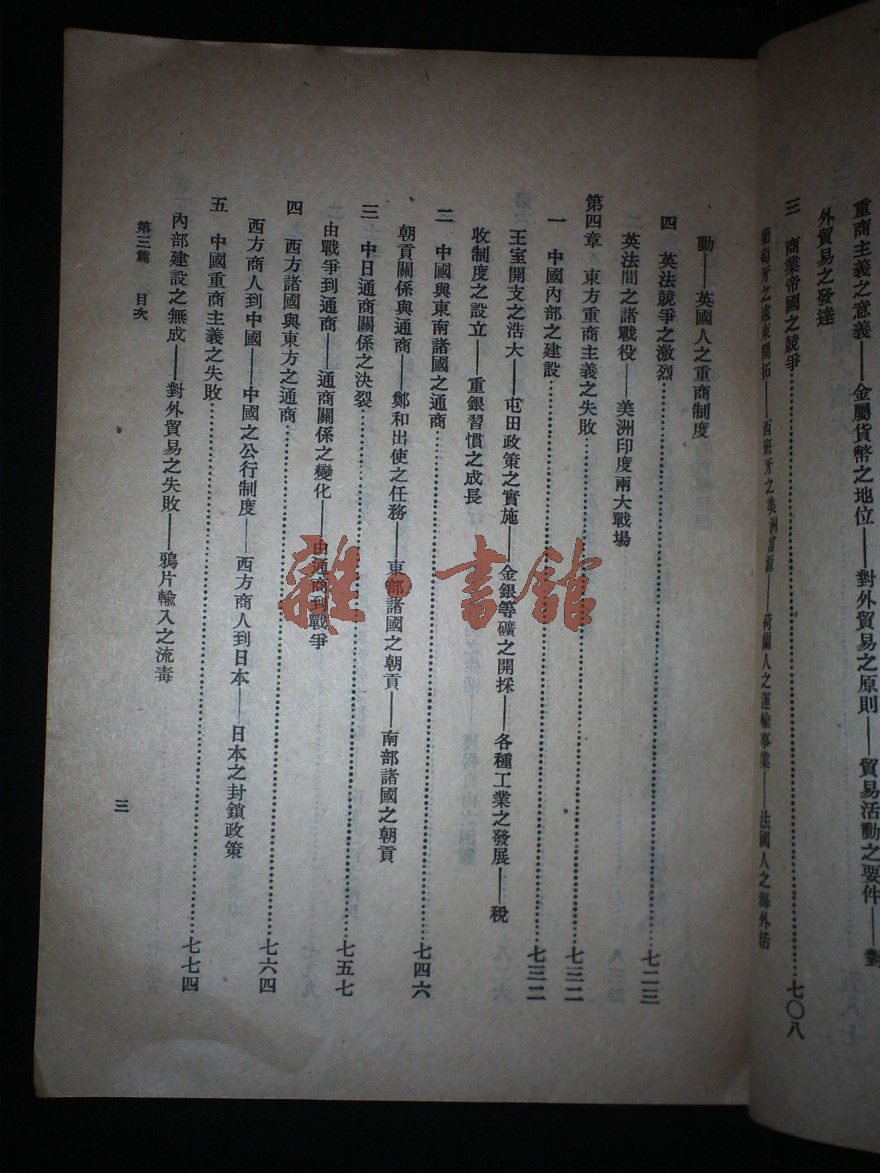 重商主義之意義——金屬貨幣之地位——對外貿易之原則——貿易活動之要件——對
外貿易之發達
三　商業帝國之競爭……………………七〇八
葡萄牙之遠東開拓——西班牙之美洲富源——荷蘭人之運輸事業——法國人之海外活
動——英國人之重商制度
四　英法競爭之激烈……………………七二三
英法間之諸戰役——美洲印度兩大戰場
第四章　東方重商主義之失敗……………………七三二
一　中國內部之建設……………………七三二
王室開支之浩大——屯田政策之實施——金銀等礦之開採——各種工業之發展——稅
收制度之設立——重銀習慣之成長
二　中國與東南諸國之通商……………………七四六
朝貢關係與通商——鄭和出使之任務——東部諸國之朝貢——南部諸國之朝貢
三　中日通商關係之決裂……………………七五七
由戰爭到通商——通商關係之變化——由通商到戰爭
四　西方諸國與東方之通商……………………七六四
西方商人到中國——中國之公行制度——西方商人到日本——日本之封鎖政策
五　中國重商主義之失敗……………………七七四
內部建設之無成——對外貿易之失敗——鴉片輸入之流毒
第三篇　目次
三
雜·書館